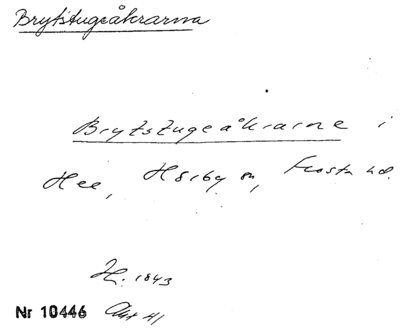 Brytstugeåkrarna
Brytstugeåkrarne i
Hee, Hörby sn, Frosta hd.
H. 1843
Nr 10446 Akt 41